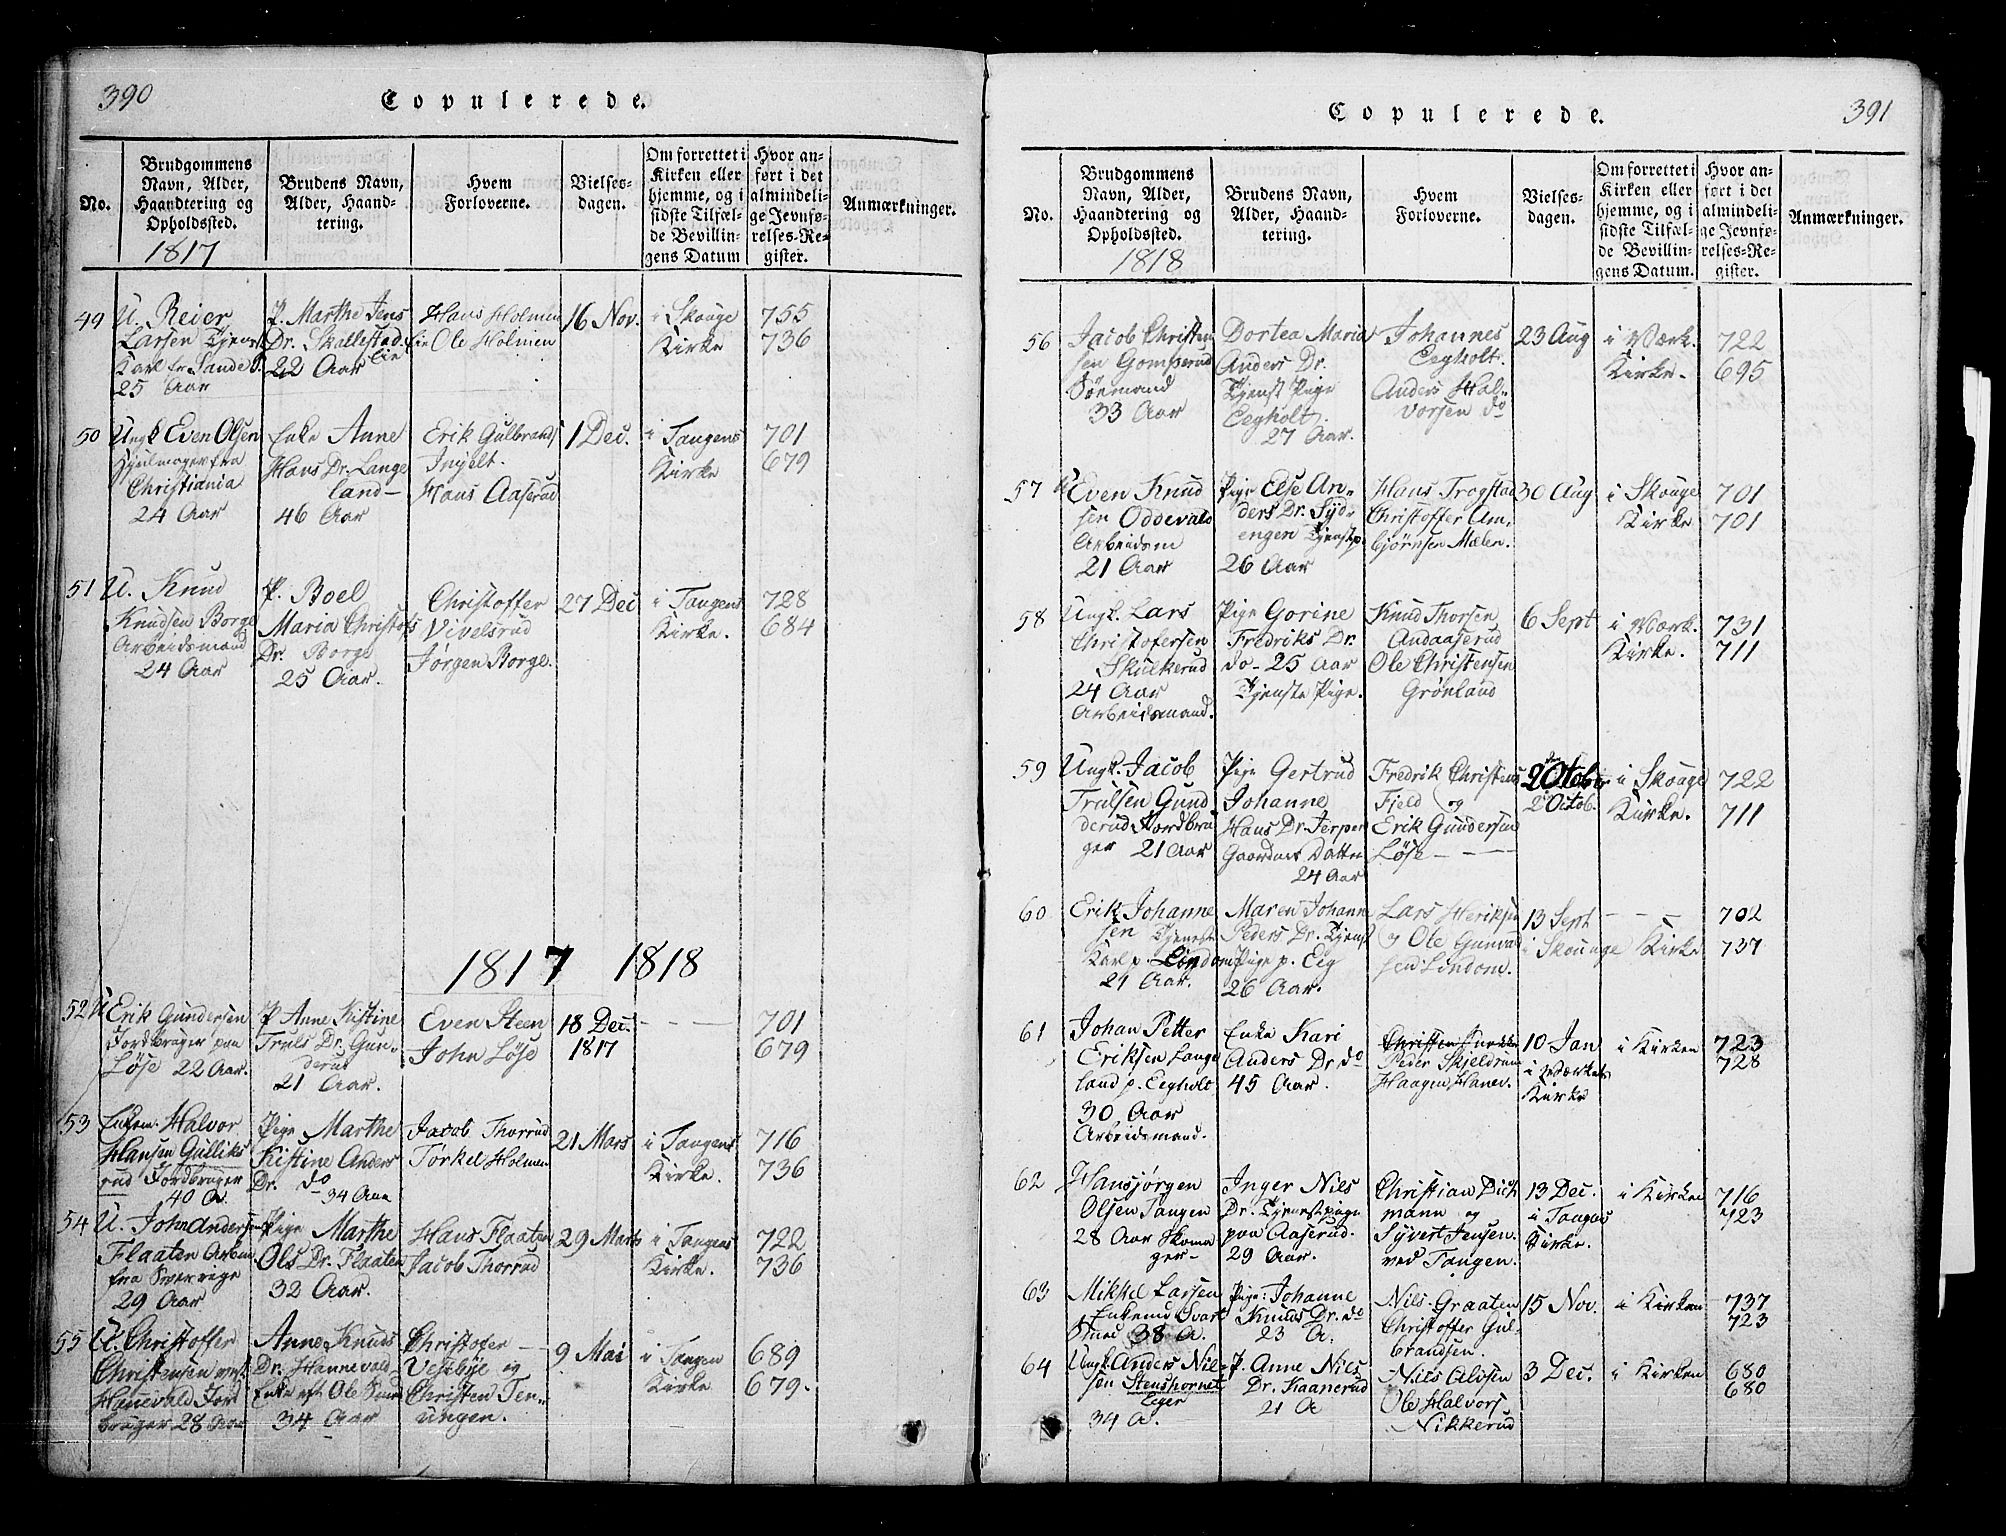 390
Copulerede.
No.
Brudgommens
Navn, Alder,
Haandtering og
Opholdssted.
1817
Brudens Navn,
Alder, Haand-
tering.
Hvem
Forloverne.
Vielses-
dagen.
Om forrettet i
Kirken eller
hjemme, og i
sidste Tilfæl-
de Bevillin-
gens Datum
Hvor an-
ført i det
almindeli-
ge Jevnfø-
relses-Re-
gister.
Anmærkninger.
49
U. Reier
Larsen Tjenst
Karl fr Sande
25 Aar
P. Marthe Jens
Dr. Skallestad
lie
22 Aar
Hans Holmen
Ole Holmen
16 Nov.
i Skouge
Kirke
755
736
50
Ungk Even Olsen
Hjulmager fra
Christiania
24 Aar
Enke Anne
Hans Dr. Lange
land
46 Aar
Erik Gulbrands
Ingelt.
Hans Aaserud
1 Dec.
i Tangens
Kirke
701
679
51
U. Knud
Knudsen Borge
Arbeidsmand
24 Aar
P. Boel
Maria Christofs
Dr. Borge
25 Aar.
Christoffer
Vivelsrud
Jørgen Borge.
27 Dec
i Tangens
Kirke.
728
684
1817 1818
52
U Erik Gundersen
Jordbruger paa
Løse 22 Aar.
P Anne Kistine
Truls Dr. Gun-
derud
21 Aar.
Even Steen
John Løse
18 Dec.
1817
— — —
701
679
53
Enkem: Halvor
Hansen Gulliks
rud Jordbruger
40 A.
Pige Marthe
Kistine Anders
Dr. do
34 Aar
Jacob Thorrud
Torkel Holmen
21 Mars
i Tangens
Kirke.
716
736
54
U. John Andersen
Flaaten Arbm
fra Sverrige
29 Aar
Pige Marthe
Ols Dr. Flaaten
32 Aar.
Hans Flaaten
Jacob Thorrud
29 Marts
i Tangens
Kirke.
722
736
55
U. Christoffer
Christensen
Hanevald Jord
bruger 28 Aar
Anne Knuds
Dr. Hannevald
Enke eft Ole
34 Aar
Christofer
Vestbye og
Christen Ten-
ungen.
9 Mai
i Tangen
Kirke
689
679.
391
Copulerede.
No.
Brudgommens
Navn, Alder,
Haandtering og
Opholdssted.
1818
Brudens Navn,
Alder, Haand-
tering.
Hvem
Forloverne.
Vielses-
dagen.
Om forrettet i
Kirken eller
hjemme, og i
sidste Tilfæl-
de Bevillin-
gens Datum.
Hvor an-
ført i det
almindeli-
ge Jevnfø-
relses-Re-
gister.
Anmærkninger.
56
Jacob Christen
sen Gomperud
Søemand
33 Aar
Dortea Maria
Anders Dr.
Tjenst Pige
Eegholt.
27 Aar.
Johannes
Eegholt.
Anders Hal-
vorsen do
23 Aug
i Værk.
Kirke.
722
695
57
U Even Knud
sen Oddevals
Arbeidsm
21 Aar
Pige Else An-
ders Dr. Syd-
engen Tjenstp
26 Aar
Hans Trogstad
Christoffer Am-
bjørnsen Mælen.
30 Aug
i Skouge
Kirke
701
701
58
Ungk. Lars
Christofersen
Skulkerud
24 Aar
Arbeidsmand.
Pige Gorine
Fredriks Dr.
do - 25 Aar
Tjenste Pige.
Knud Thorsen
Andaaserud
Ole Christensen
Grønland
6 Sept
i Værk.
Kirke.
731
711
59
Ungk. Jacob
Trulsen Gund
derud Jordbru
ger 21 Aar
Pige Gertrud
Johanne
Hans Dr. Jerpen
Gaardmt Datter
24 Aar
Fredrik Christens
Fjeld og
Erik Gundersen
Løse
2 Octob.
i Skouge
Kirke.
722
711
60
Erik Johanne
sen Tjeneste
Karl p. Lindom
21 Aar.
Maren Johann
Peders Dr. Tjenst
Pige p. Eeg
26 Aar.
Lars Heriksen
og Ole Gunvald
sen Lindom.
13 Sept — — —
i Skouge Kirke
702
737
61
Johan Petter
Eriksen Lange
land p. Eegholt
30 Aar
Arbeidsmand.
Enke Kari
Anders Dr do
45 Aar.
Peder Skjeldrum
Haagen Haner.
10 Jan
i Værkets
Kirke
i Kirken
723
728
62
Hansjørgen
Olsen Tangen
28 Aar Skoma
ger
Inger Nils
Dr. Tjenestpige
paa Aaserud.
29 Aar.
Christian Dich
mann og
Syvert Jensen.
ved Tangen.
13 Dec.
i Tangens
Kirke.
i Kirken
716
723
63
Mikkel Larsen
Enkemd Svart
Snee 38 A.
Pige: Johanne
Knuds Dr. do
23 A.
Nils Graaten
Christoffer Gul-
brandsen.
15 Nov.
i Kirken
737
723
64
Ungk. Anders Nil-
sen Stenshornet
Eger
34 A.
P. Anne Nils
Dr. Kaanerud
21 A
Nils Alvsen
Ole Halvors
Nikkerud
3 Dec.
i Kirken
680
680